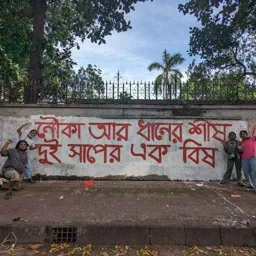 নৌকা আর ধানের শীষ
দুই সাপের এক বিষ